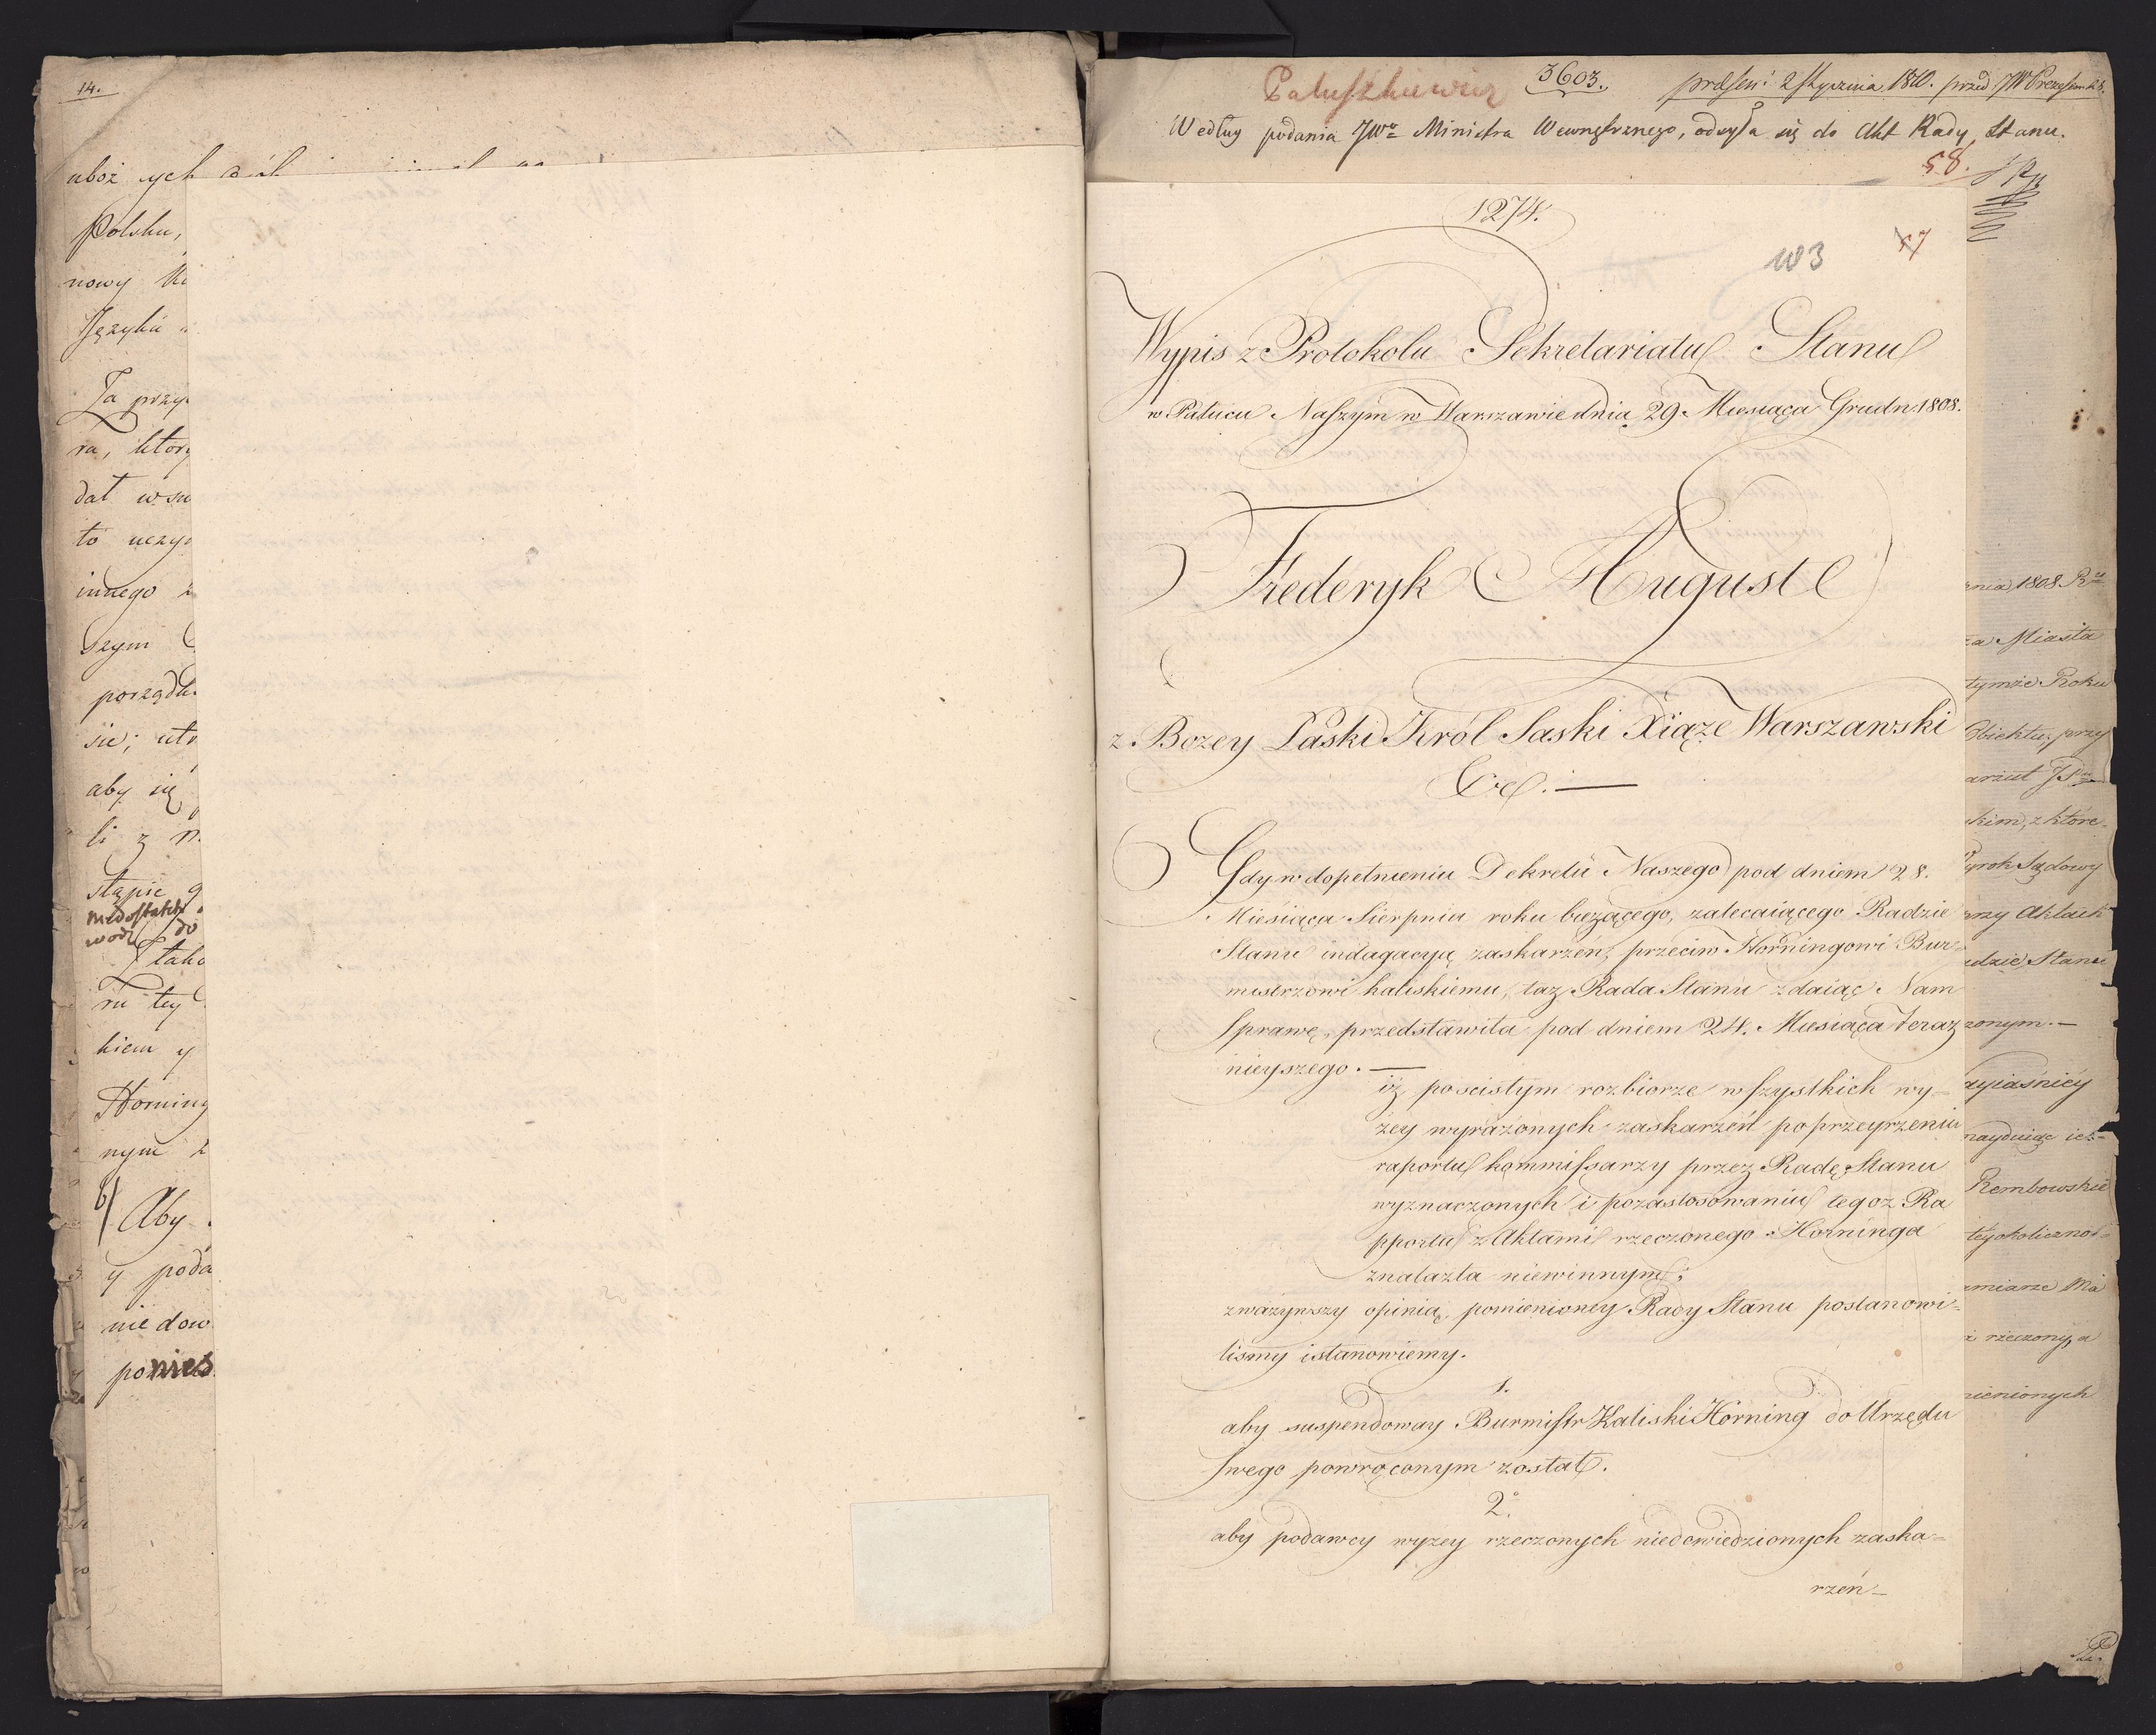 14.
uboż ych
Polsku,
nowy
Języku
Ta przy
ra, ktory
dał w su
to uczy
innego
szym
porządk
sie; utr
aby się
li z n
stąpic
niedostatek
wody do
tak
ru tey
kiem y
Horning
nym
6) Aby
y poda
nie dow
ponies
Łatuszkiewicz 3603. praesen: 2 Stycznia 1810. przed JW Prezesem
Według podania JWo Ministra Wewnętrznego, odsyła się do Akt Rady Stanu.
58.
1274.
103 57
Wypis z Protokolu Sekretariatu Stanu
w Pałacu Naszym w Warszawie dnia 29 Miesiąca Grudn: 1808.
Frederyk August
z Bozey Łaski Król Saski Xiąże Warszawski
&c. —
Gdy w dopełnieniu Dekretu Naszego pod dniem 28.
Miesiąca Sierpnia roku bieżącego, zalecaiącego Radzie
Stanu indagacyą zaskarżeń, przeciw Horningowi Bur-
mistrzowi kaliskiemu, taż Rada Stanu zdaiąc Nam
Sprawę, przedstawiła pod dniem 24. Miesiąca teraz
nieyszego. —
iż po scisłym rozbiorze wszystkich wy-
żey wyrażonych zaskarżeń po przeyrzeniu
raportu kommissarzy przez Radę Stanu
wyznaczonych i po zastosowaniu tegoż Ra
pportu z Aktami rzeczonego Horninga
znalazła niewinnym;
zważywszy opinią, pomienioney Rady Stanu postanowi-
lismy i stanowiemy.
1.
aby suspendoway Burmistr Kaliski Horning do Urzędu
swego powróconym został.
2.
aby podawcy wyzey rzeczonych niedowiedzionych zaska-
rzeń-
nia 1808 Ru
za Miasta
tymże Roku
Obiektu, przy
kiem, z które-
Wyrok Sądowy
przy Aktach
adzie Stanu
zonym. —
ayiaśnicy
nayduiąc ich-
Rembowskie
tey okolicznoś-
amiarze Mia
ż rzeczony, a
mienionych